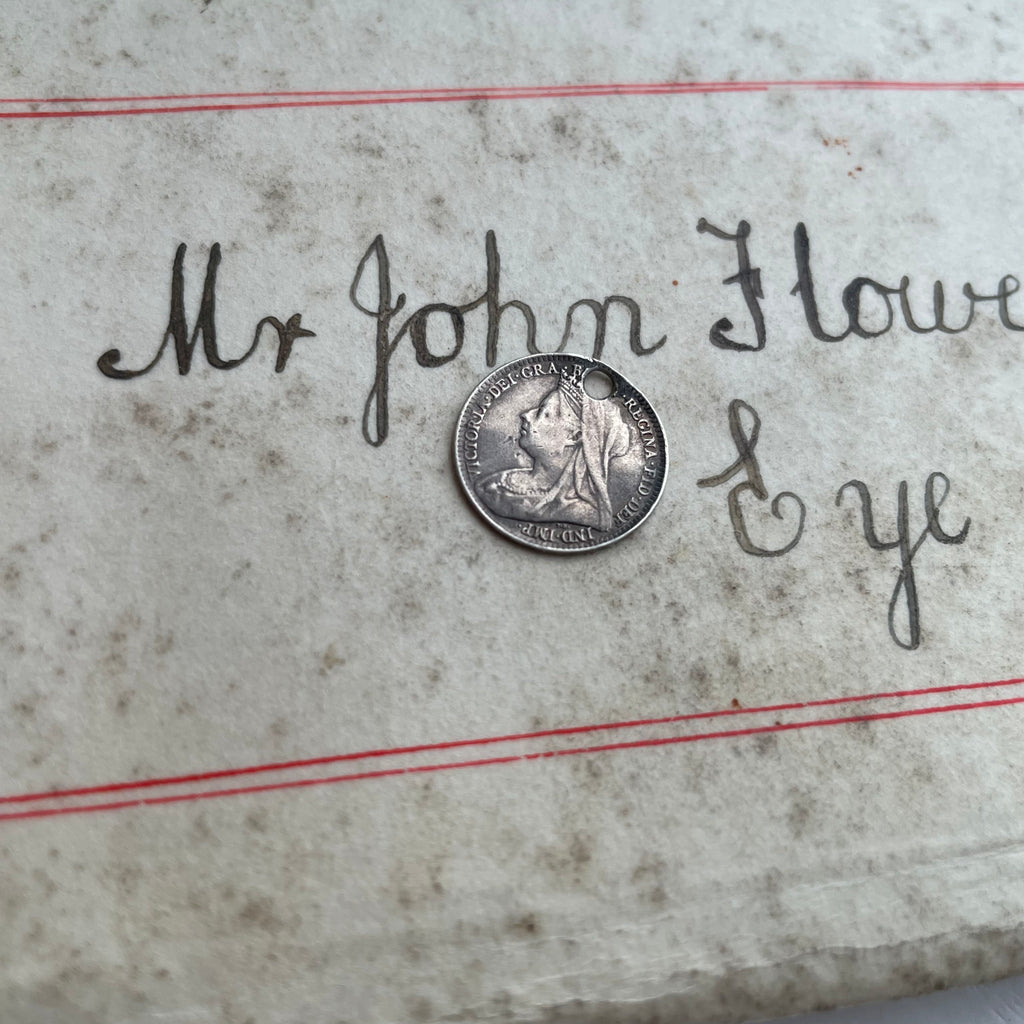 Mr John Flowe
Eye
VICTORIA·DEI·GRA·B REGINA·FID·DEF·IND·IMP·